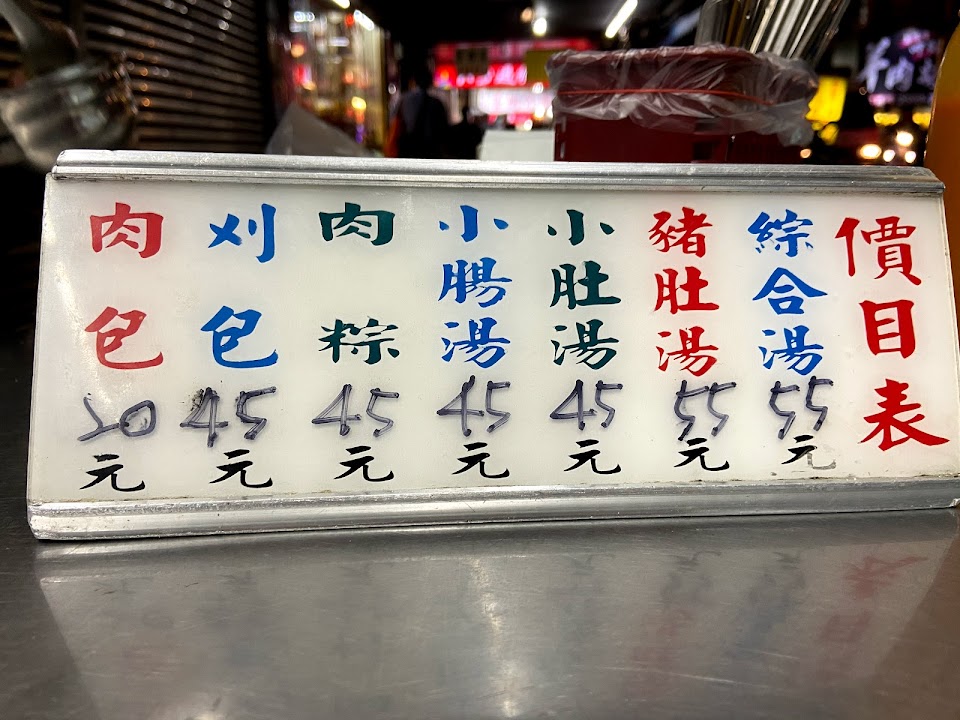 價目表
綜合湯 55元
豬肚湯 55元
小肚湯 45元
小腸湯 45元
肉粽 45元
刈包 45元
肉包 20元
羊肉